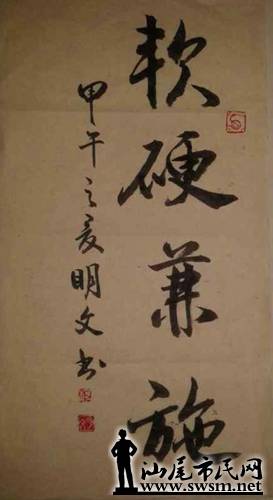 软硬兼施
甲午之夏明文书
汕尾市民网
www.swsm.net